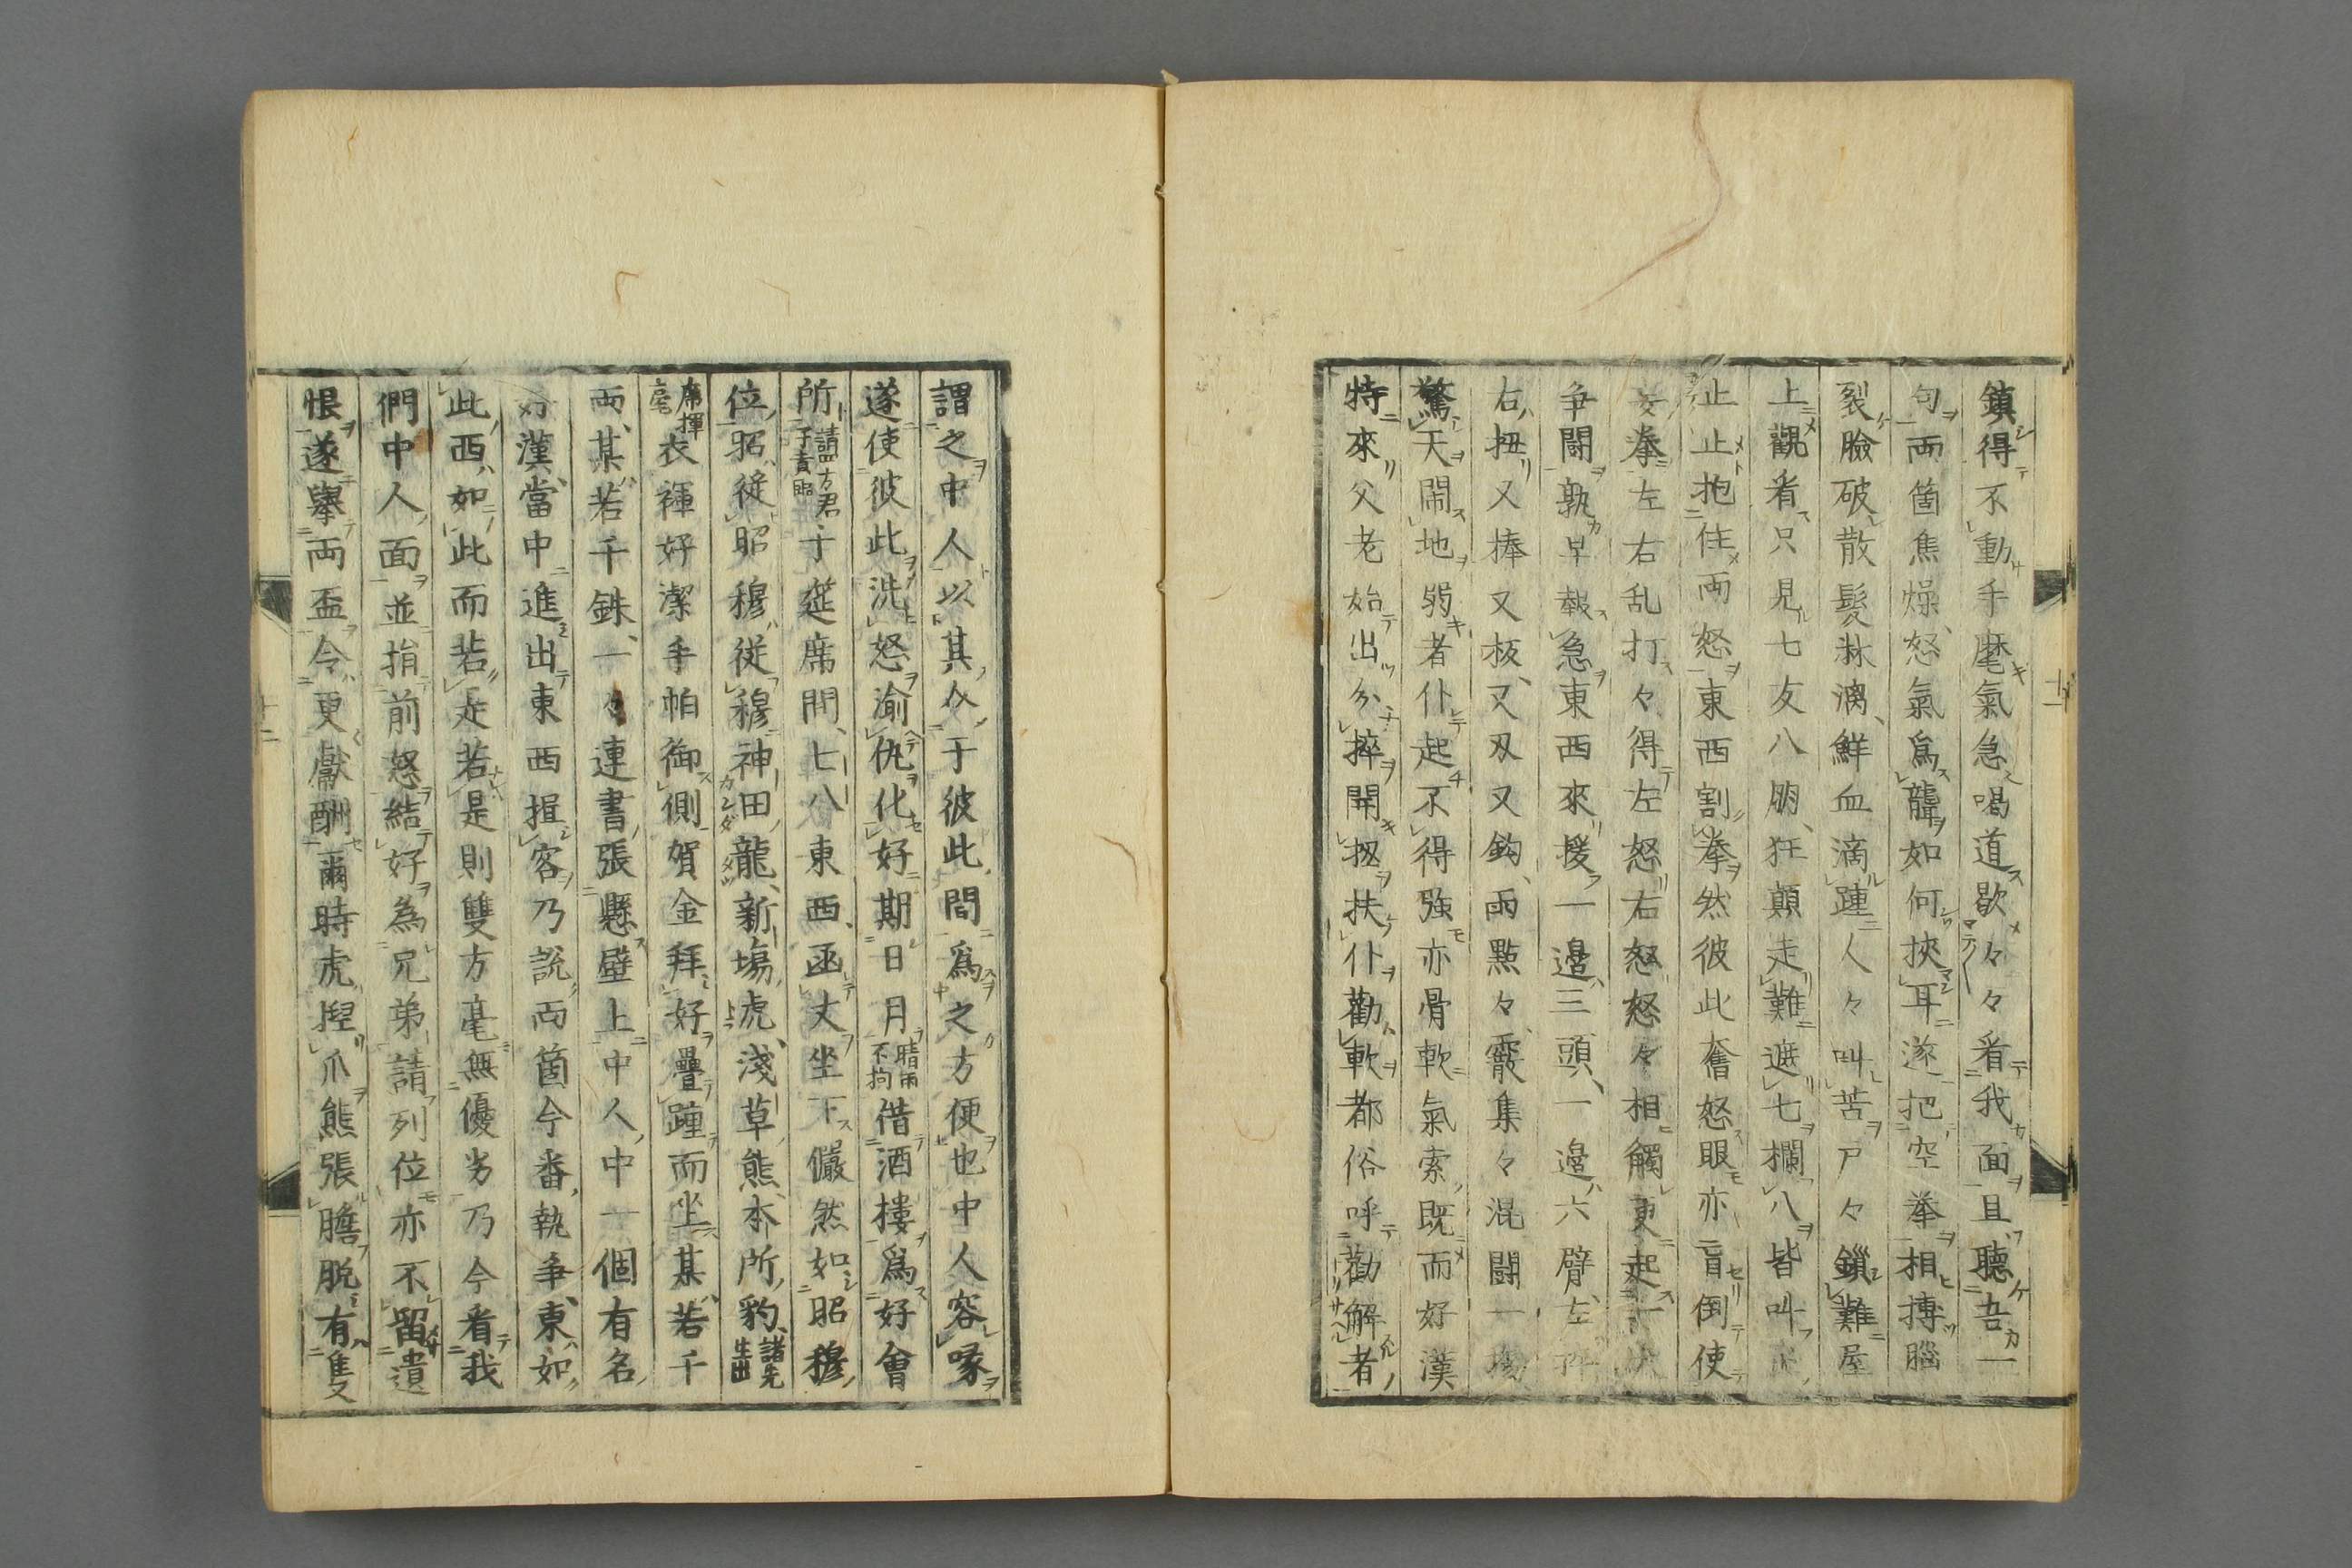 鎮得不動手麾氣急喝道歇々々看我面且聽吾一
句兩箇焦燥怒氣爲聾如何挾耳遂把空拳相搏腦
裂臉破散髮淋漓鮮血滴踵人々叫苦戸々鎖難屋
上觀看只見七友八朋狂顛走難遮七欄八皆叫
止止抱住兩怒東西割拳然彼此奮怒眼亦盲倒使
拳左右乱打々得左怒右怒怒々相觸更起一
争鬪孰早報急東西來援一邊三頭一邊六臂左
右扭又棒又板又刄又鈎兩點々霰集々混鬪一場
驚天閙地弱者仆起不得強亦骨軟氣索既而好漢
特來父老始出分捽開扨扶仆勸軟都俗呼勸解者
十一
謂之中人以其介于彼此間爲之方便也中人容喙
遂使彼此洗怒渝仇化好期日月晴雨不拘借酒樓爲好會
所請四方君子責臨于莚席間七八東西函丈坐下儼然如昭穆
位昭從昭穆從穆神田龍新塲虎淺草熊本所豹諸先生出
席揮毫衣褌好潔手帕御側賀金拜好疊踵而坐某若千
兩某若千銖一々連書張懸壁上中人中一個有名
好漢當中進出東西揖客乃説兩箇今番執爭東如
此西如此而若走若是則雙方毫無優劣乃今看我
們中人面並捐前怒結好為兄弟請列位亦不留遺
恨遂擧両盃令更獻酬爾時虎揑爪熊張膽脱有隻
十二